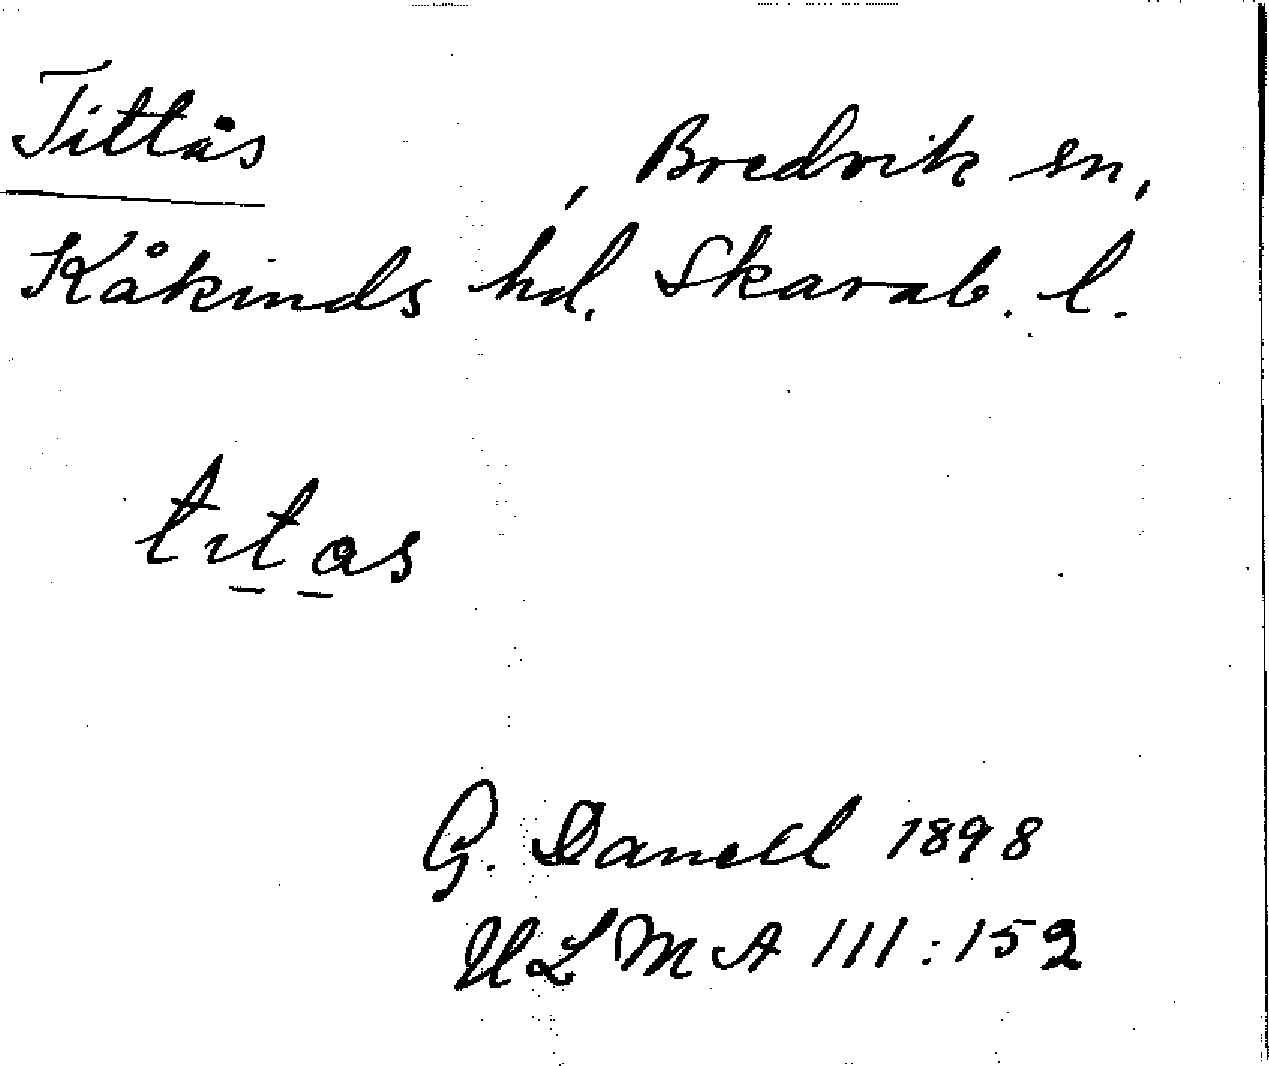 Tittås , Bredvik sn,
Kåkinds hd. Skarab. l.
titas
G. Danell 1898
ULMA 111:152